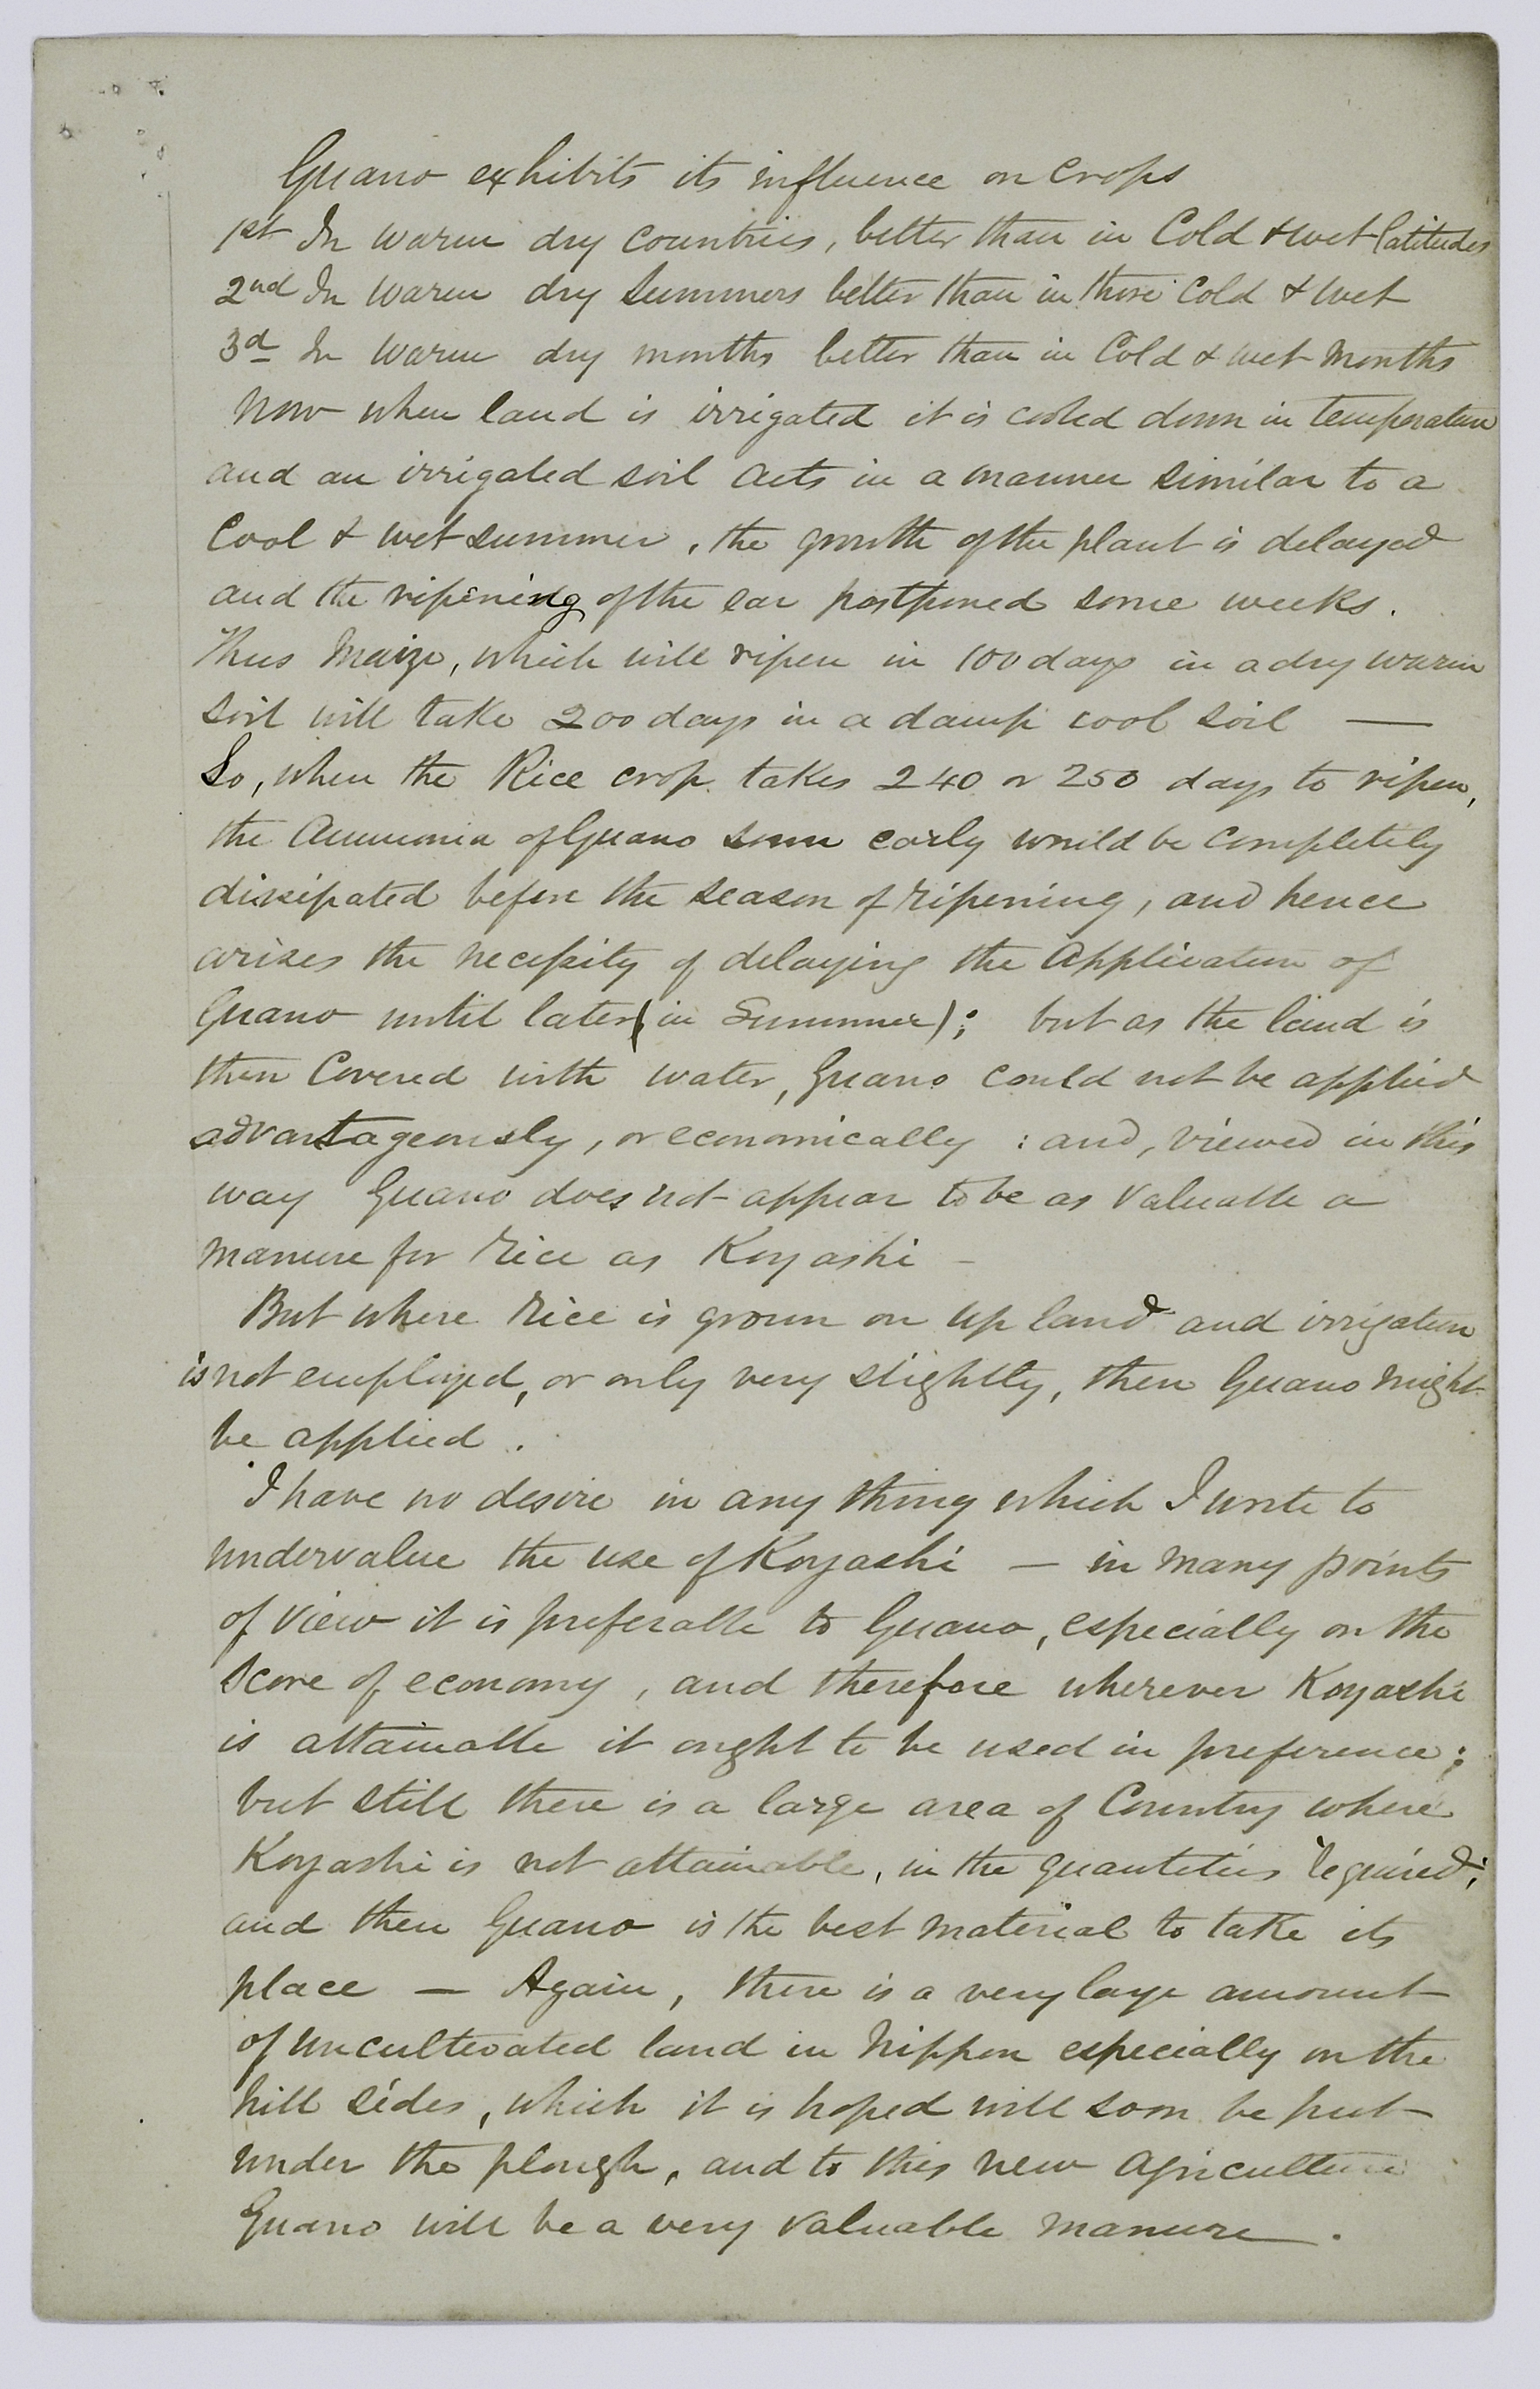 Guano exhibits its influence on Crops
1st In warm dry Countries, better than in Cold & wet latitudes
2nd In warm dry Summers better than in those Cold & wet
3d In warm dry months better than in Cold & wet Months
Now when land is irrigated it is cooled down in temperature
and an irrigated soil acts in a manner similar to a
Cool & wet summer, the growth of the plant is delayed
and the ripening of the ear postponed some weeks.
Thus Maize, which will ripen in 100 days in a dry warm
soil will take 200 days in a damp cool soil —
So, when the Rice crop takes 240 or 250 days to ripen,
the Ammonia of Guano sown early would be completely
dissipated before the season of ripening, and hence
arises the necessity of delaying the Application of
Guano until later (in Summer); but as the land is
then Covered with water, Guano could not be applied
advantageously, or economically : and, viewed in this
way Guano does not appear to be as valuable a
manure for rice as Koyashi –
But where rice is grown on up land and irrigation
is not employed, or only very slightly, then Guano might
be applied.
I have no desire in any thing which I write to
undervalue the use of Koyashi — in many points
of view it is preferable to Guano, especially on the
score of economy, and therefore wherever Koyashi
is attainable it ought to be used in preference;
but still there is a large area of Country where
Koyashi is not attainable, in the quantities required;
and then Guano is the best material to take its
place — Again, there is a very large amount
of uncultivated land in Nippon especially on the
hill sides, which it is hoped will soon be put
under the plough, and to this new Agriculture
Guano will be a very valuable manure.